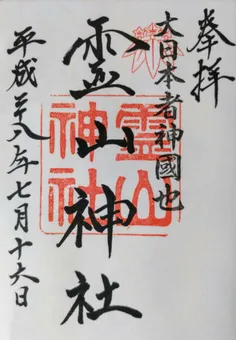 奉拝
大日本者神國也
霊山神社
霊山神社
平成二十八年七月十六日